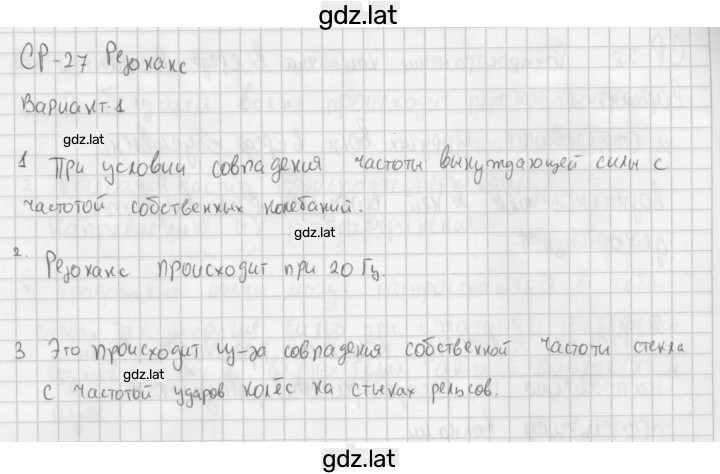 gdz.lat
СР-27 Резонанс
Вариант-1
gdz.lat
1 При условии совпадения частоты вынуждающей силы с
частотой собственных колебаний.
gdz.lat
2. Резонанс происходит при 20 Гц.
3 Это происходит из-за совпадения собственной частоты стекла
gdz.lat
с частотой ударов колёс на стыках рельсов.
gdz.lat